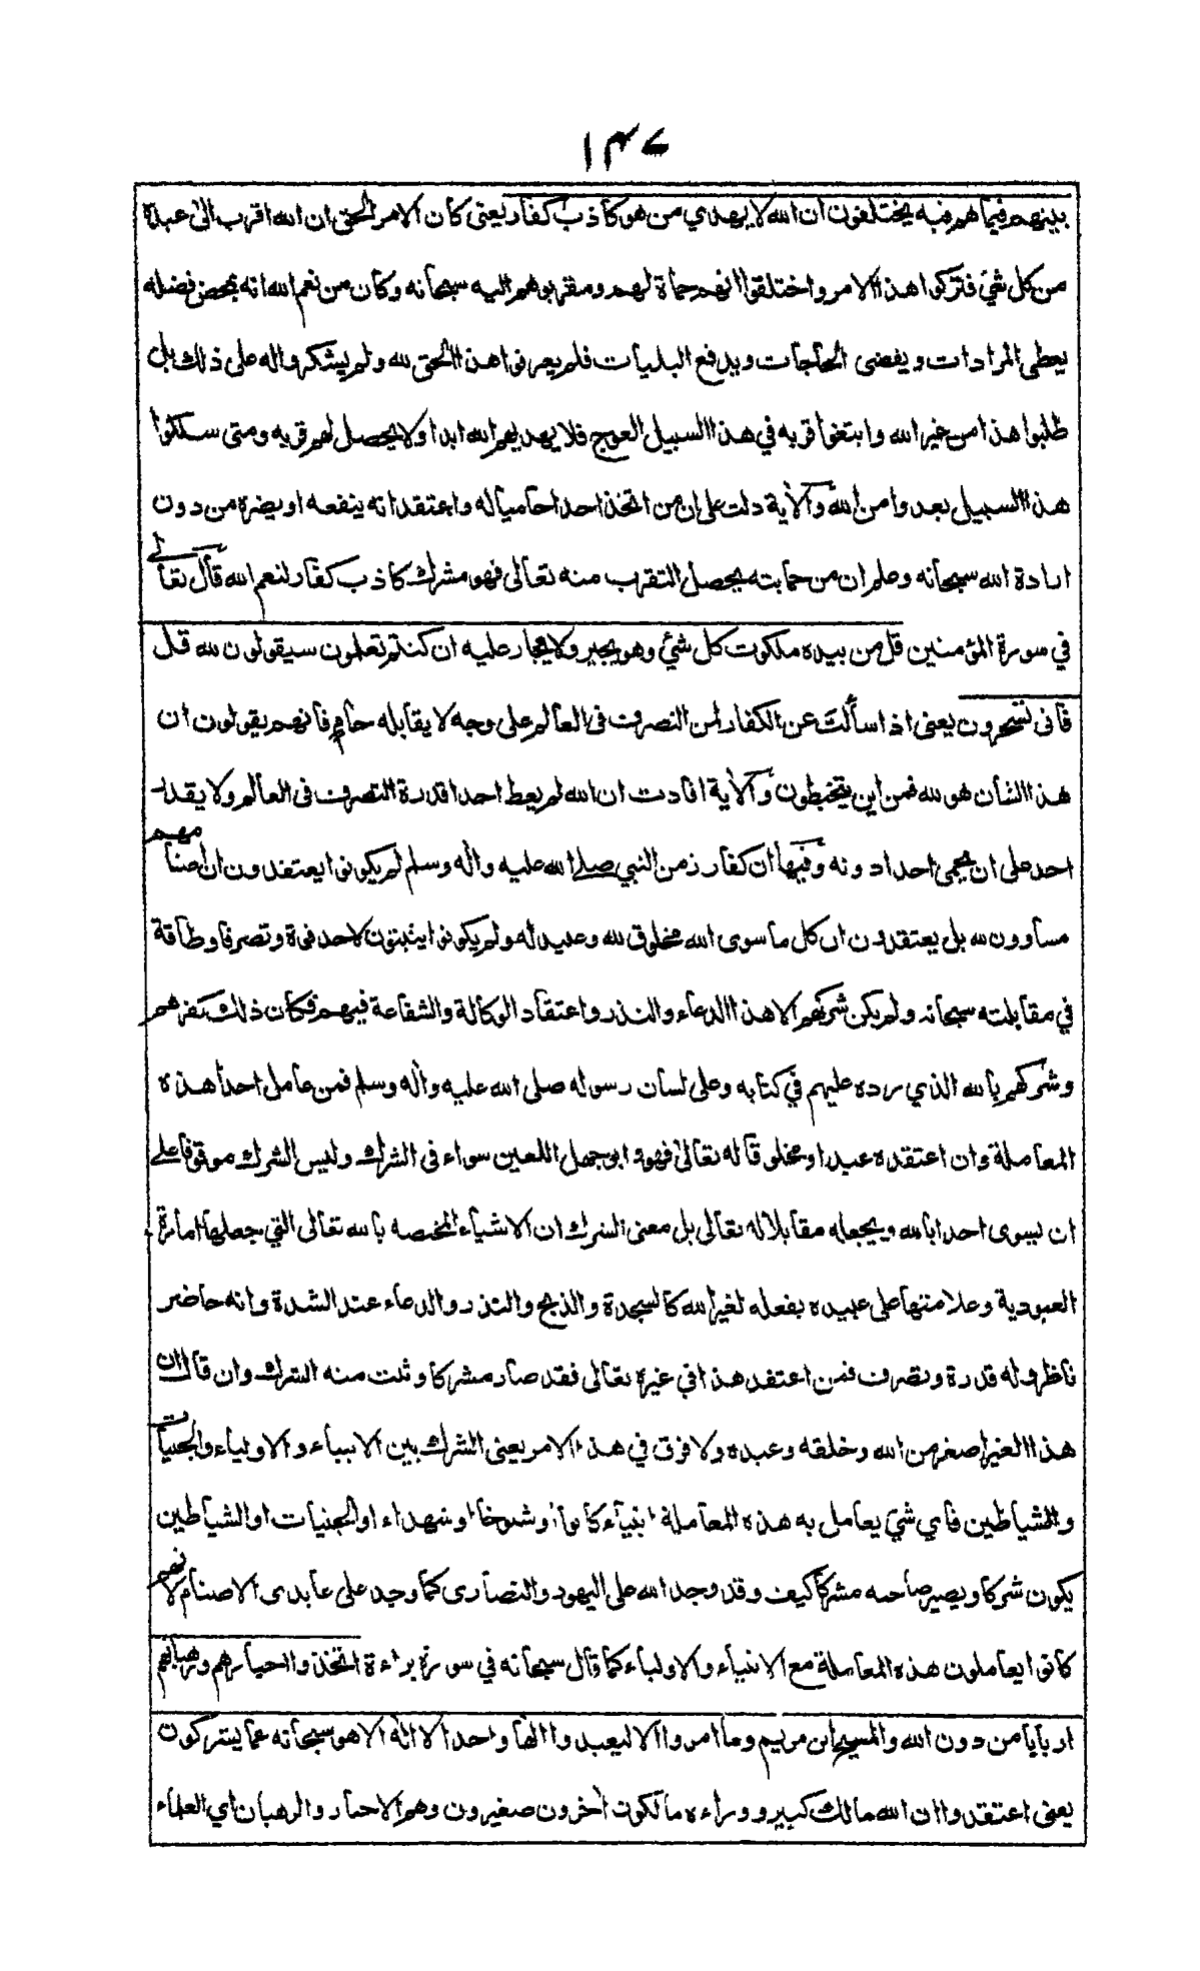 ١٤٧
بينهم فيما هم فيه يختلفون ان الله لا يهدي من هو كاذب كفار يعني كان الامر الحق ان الله اقرب الى عبده
من كل شئ فتركوا هذا الامر واختلقوا انهم حماة لهم ومقربوهم اليه سبحانه وكان من نعم الله انه بمحض فضله
يعطى المرادات ويقضى الحاجات ويدفع البليات فلم يعرفوا هذا الحق لله ولم يشكروا له على ذلك بل
طلبوا هذا من غير الله وابتغوا قربه في هذا السبيل العوج فلا يهديهم الله ابدا ولا يحصل لهم قربه ومتى سلكوا
هذا السبيل بعدوا من الله والآية دلت على ان من اتخذ احدا حاميا له واعتقد انه ينفعه او يضره من دون
ارادة الله سبحانه وعلم ان من حمايته يحصل التقرب منه تعالى فهو مشرك كاذب كفار لنعم الله قال تعالى
في سورة المؤمنين قل من بيده ملكوت كل شئ وهو يجير ولا يجار عليه ان كنتم تعلمون سيقولون لله قل
فانى تسحرون يعنى اذا سألت عن الكفار لمن التصرف فى العالم على وجه لا يقابله حام فانهم يقولون ان
هذا الشان هو لله فمن اين يتخبطون والآية افادت ان الله لم يعط احدا قدرة التصرف فى العالم ولا يقدر
احد على ان يحمى احدا دونه وفيها ان كفار زمن النبي صلى الله عليه وآله وسلم لم يكونوا يعتقدون ان اصنامهم
مساوون لله بل يعتقدون ان كل ما سوى الله مخلوق لله وعبيد له ولم يكونوا يثبتون لاحد قوة وتصرفا وطاقة
في مقابلته سبحانه ولم يكن شركهم الا هذا الدعاء والنذر واعتقاد الوكالة والشفاعة فيهم فكان ذلك كفرهم
وشركهم بالله الذي رده عليهم في كتابه وعلى لسان رسوله صلى الله عليه وآله وسلم فمن عامل احدا هذه
المعاملة وان اعتقده عبدا ومخلوقا له تعالى فهو وابو جهل اللعين سواء فى الشرك وليس الشرك موقوفا على
ان يسوى احدا بالله ويجعله مقابلا له تعالى بل معنى الشرك ان الاشياء المختصه بالله تعالى التي جعلها امارة
العبودية وعلامتها على عبيده يفعله لغير الله كالسجدة والذبح والنذر والدعاء عند الشدة وانه حاضر
ناظر وله قدرة وتصرف فمن اعتقد هذا في غيره تعالى فقد صار مشركا وثبت منه الشرك وان قال ان
هذا الغير اصغر من الله وخلقه وعبده ولا فرق في هذا الامر يعنى الشرك بين الانبياء والاولياء والجنيات
والشياطين فاي شئ يعامل به هذه المعاملة انبياء كانوا او شيوخا او شهداء او الجنيات او الشياطين
يكون شركا ويصير صاحبه مشركا كيف وقد وجد الله على اليهود والنصارى كما وجد على عابدى الاصنام لانهم
كانوا يعاملون هذه المعاملة مع الانبياء والاولياء كما قال سبحانه في سورة براءة اتخذوا احبارهم ورهبانهم
اربابا من دون الله والمسيح ابن مريم وما امروا الا ليعبدوا الها واحدا لا اله الا هو سبحانه عما يشركون
يعنى اعتقدوا ان الله مالك كبير ووراءه مالكون آخرون صغيرون وهم الاحبار والرهبان اي العلماء